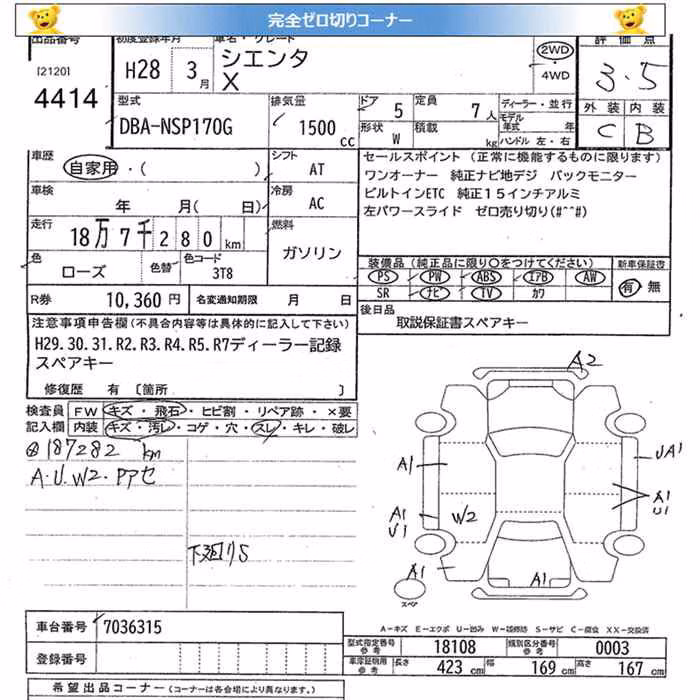 完全ゼロ切りコーナー
出品番号 初度登録年月 車名・グレード 評価点
[2120] H28 3月 シエンタ 2WD
4414 X 4WD 3.5
型式 排気量 ドア 5 定員 7人 ディーラー・並行 外装 内装
DBA-NSP170G 1500cc 形状 W 積載 kg モデル年式 年 C B
ハンドル 左・右
車歴 自家用・( ) シフト AT セールスポイント (正常に機能するものに限ります)
ワンオーナー 純正ナビ地デジ バックモニター
車検 年 月(日) 冷房 AC ビルトインETC 純正15インチアルミ
左パワースライド ゼロ売り切り(#^^#)
走行 18万7千280km 燃料 ガソリン
色 ローズ 色替 色コード 3T8 装備品 (純正品に限り○をつけてください) 新車保証書
PS PW ABS エアB AW 有・無
SR ナビ TV カワ
R券 10,360円 名変通知期限 月 日 後日品
取説保証書スペアキー
注意事項申告欄 (不具合内容等は具体的に記入して下さい)
H29.30.31.R2.R3.R4.R5.R7ディーラー記録
スペアキー
修復歴 有 〔箇所 〕
検査員 FW キズ・飛石・ヒビ割・リペア跡・×要
記入欄 内装 キズ・汚レ・コゲ・穴・スレ・キレ・破レ
187282km
A.U.W2.PPアセ
下廻りS
A2
A1
UA1
A1
U1
A1
U1
W2
A1
A1
スペア
A-キズ E-エクボ U-凹み W-補修跡 S-サビ C-腐食 XX-交換済
車台番号 7036315
型式指定番号 参考 18108 類別区分番号 参考 0003
登録番号 車庫証明用 参考 長さ 423cm 幅 169cm 高さ 167cm
希望出品コーナー (コーナーは各会場により異なります。)